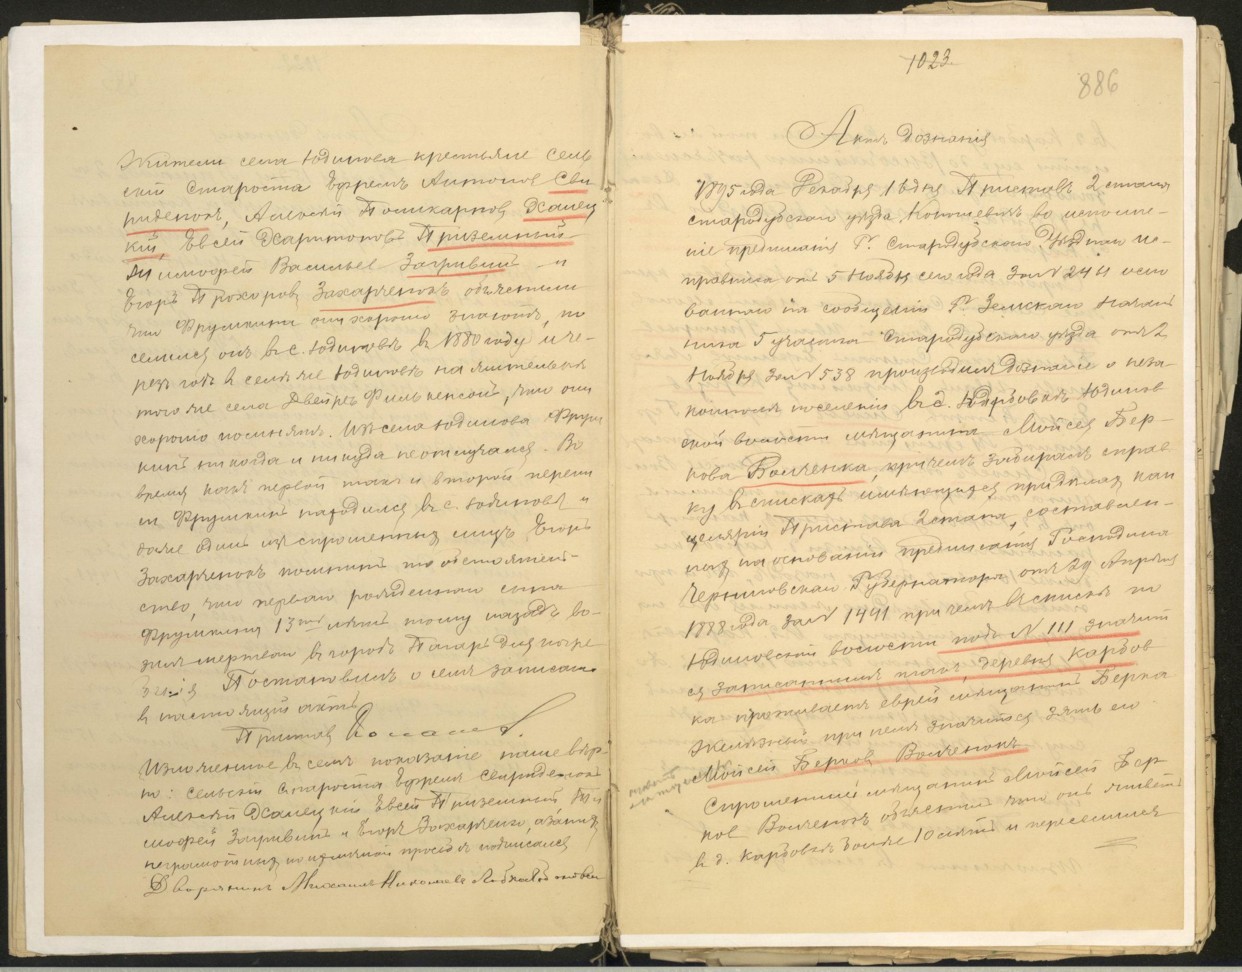 Жители села Юдинова крестьяне Сель
скій Староста Ефремъ Антонов Сви
риденокъ, Алексѣй Поликарповъ Халец
кій, Евсей Харитоновъ Приземный
Тимофей Васильев Загривный и
Егоръ Прохоровъ Захарченокъ объяснили
что Фрумкина они хорошо знаютъ, по
селился онъ въ с. Юдиновѣ въ 1880 году и че-
резъ годъ въ селѣ же Юдиновѣ на жительницѣ
того же села Двейрѣ что они
хорошо помнятъ. Изъ села Юдинова Фрум
кинъ никогда и никуда не отлучался. Во
время какъ первой такъ и второй перепи
си Фрумкинъ находился въ с. Юдиновѣ и
даже одинъ изъ спрошенныхъ лицъ Егоръ
Захарченокъ помнитъ то обстоятель-
ство, что перваго рожденнаго сына
Фрумкина 13ть лѣтъ тому назадъ во-
зилъ мертваго въ городъ Погаръ для погре
бенія Постановилъ о семъ записать
въ настоящій актъ
Приставъ
Изложенное въ семъ показаніе наше вѣр-
но: сельскій староста Ефремъ Свириденокъ
Алексѣй Халецкій Евсей Приземный, Ти
мофей Загривный и Егоръ Захарченко, а за нихъ
неграмотныхъ по ихъ личной просьбѣ подписался
Дворянинъ Михаилъ Николаевъ
1023
886
Актъ Дознанія
1895 года Декабря 1 дня Приставъ 2 стана
Стародубскаго уѣзда, во исполне-
ніе предписанія Г. Стародубскаго Уѣзднаго Ис-
правника отъ 5 Ноября сего года за № 2411 осно
ваннаго на сообщеніи Г. Земскаго Началь
ника 5 участка Стародубскаго уѣзда отъ 2
Ноября за № 538 производилъ дознаніе о неза-
конномъ поселеніи въ д. Карбовкѣ Юдинов
ской волости мѣщанина Мойсея Бер-
кова Волченка, причемъ забиралъ справ
ку въ спискахъ имѣющихся при дѣлахъ кан
целяріи Пристава 2 стана, составлен-
ныхъ на основаніи предписанія Господина
Черниговскаго Губернатора отъ 29 Апрѣля
1888 года за № 1491 причемъ въ спискѣ по
Юдиновской волости подъ № 111 значит
ся записаннымъ такъ, деревня Карбов
ка проживаетъ еврей мѣщанинъ Берка
при немъ значится зять его
Мойсей Берковъ Волченокъ
Спрошенный мѣщанинъ Мойсей Бер
ковъ Волченокъ объяснилъ что онъ живетъ
въ д. Карбовкѣ болѣе 10 лѣтъ и переселился